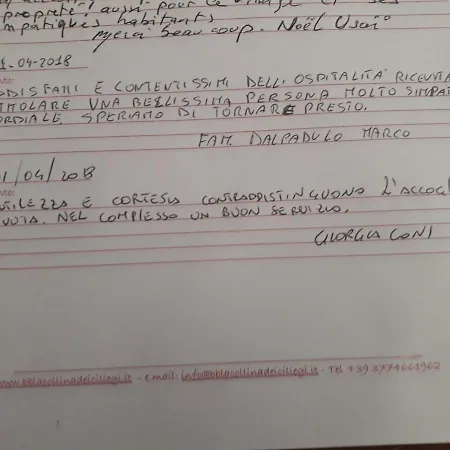 propreté, aussi pour ce village et ses
mpatiques habitants
merci beaucoup. Noël Usaï
1.04-2018
DDISFATTI E CONTENTISSIMI DELL'OSPITALITÀ RICEVUTA
TITOLARE UNA BELLISSIMA PERSONA MOLTO SIMPAT
ORDIALE. SPERIAMO DI TORNARE PRESTO.
FAM. DALPADULO MARCO
1/04/2018
nto:
NTILEZZA E CORTESIA CONTRADDISTINGUONO L'ACCOGL
VUTA. NEL COMPLESSO UN BUON SERVIZIO.
GIORGIA CONI
www.bblacollinadeiciliegi.it - e.mail: info@bblacollinadeiciliegi.it - Tel +39 3774661962